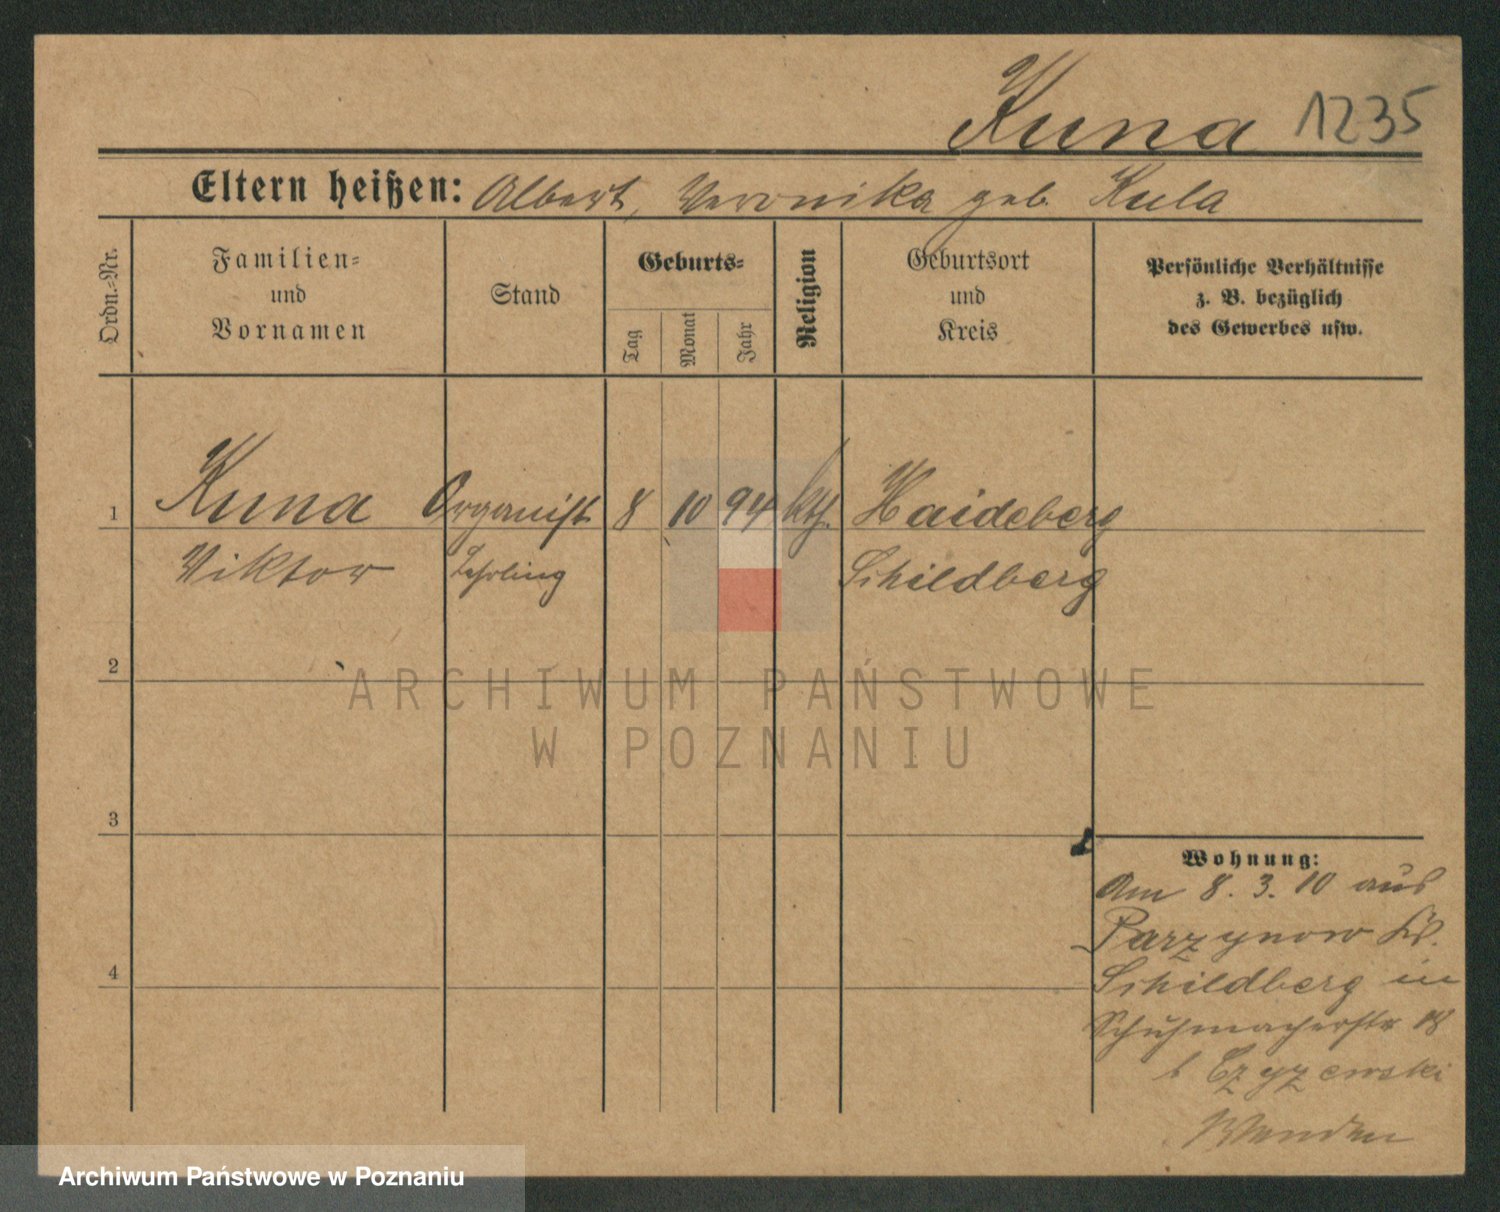 Kuna 1235
Eltern heißen: Albert, Veronika geb. Kula
Ordn.-Nr.
Familien-
und
Vornamen
Stand
Geburts-
Tag
Monat
Jahr
Religion
Geburtsort
und
Kreis
Persönliche Verhältnisse
z. B. bezüglich
des Gewerbes usw.
1 Kuna Organist 8 10 94 kth. Haideberg
Viktor Lehrling Schildberg
2
ARCHIWUM PAŃSTWOWE
W POZNANIU
3
Wohnung:
Am 8. 3. 10 aus
Parzynow Kr.
4
Schildberg in
Schuhmacherstr 18
b Czyzewski
Archiwum Państwowe w Poznaniu